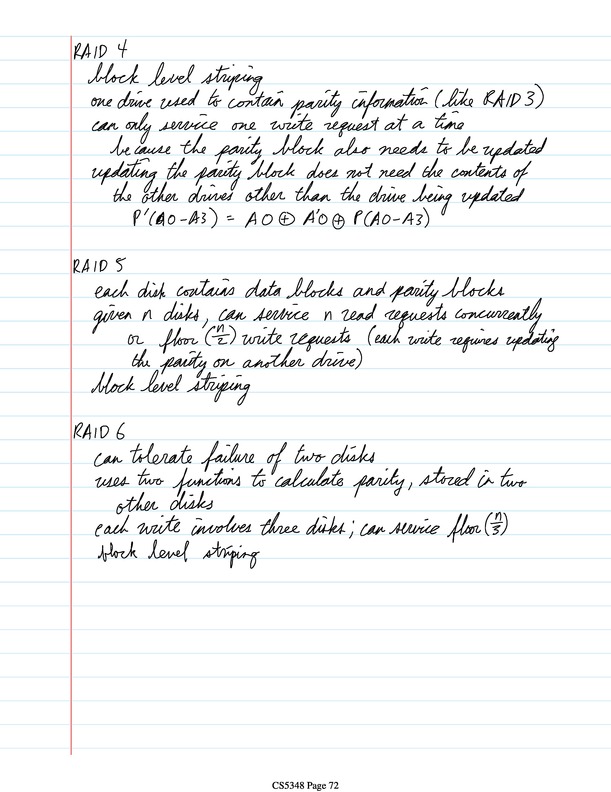 RAID 4
block level striping
one drive used to contain parity information (like RAID 3)
can only service one write request at a time
because the parity block also needs to be updated
updating the parity block does not need the contents of
the other drives other than the drive being updated
P'(A0-A3) = A0 ⊕ A'0 ⊕ P(A0-A3)
RAID 5
each disk contains data blocks and parity blocks
given n disks, can service n read requests concurrently
or floor (n/2) write requests (each write requires updating
the parity on another drive)
block level striping
RAID 6
can tolerate failure of two disks
uses two functions to calculate parity, stored in two
other disks
each write involves three disks; can service floor (n/3)
block level striping
CS5348 Page 72